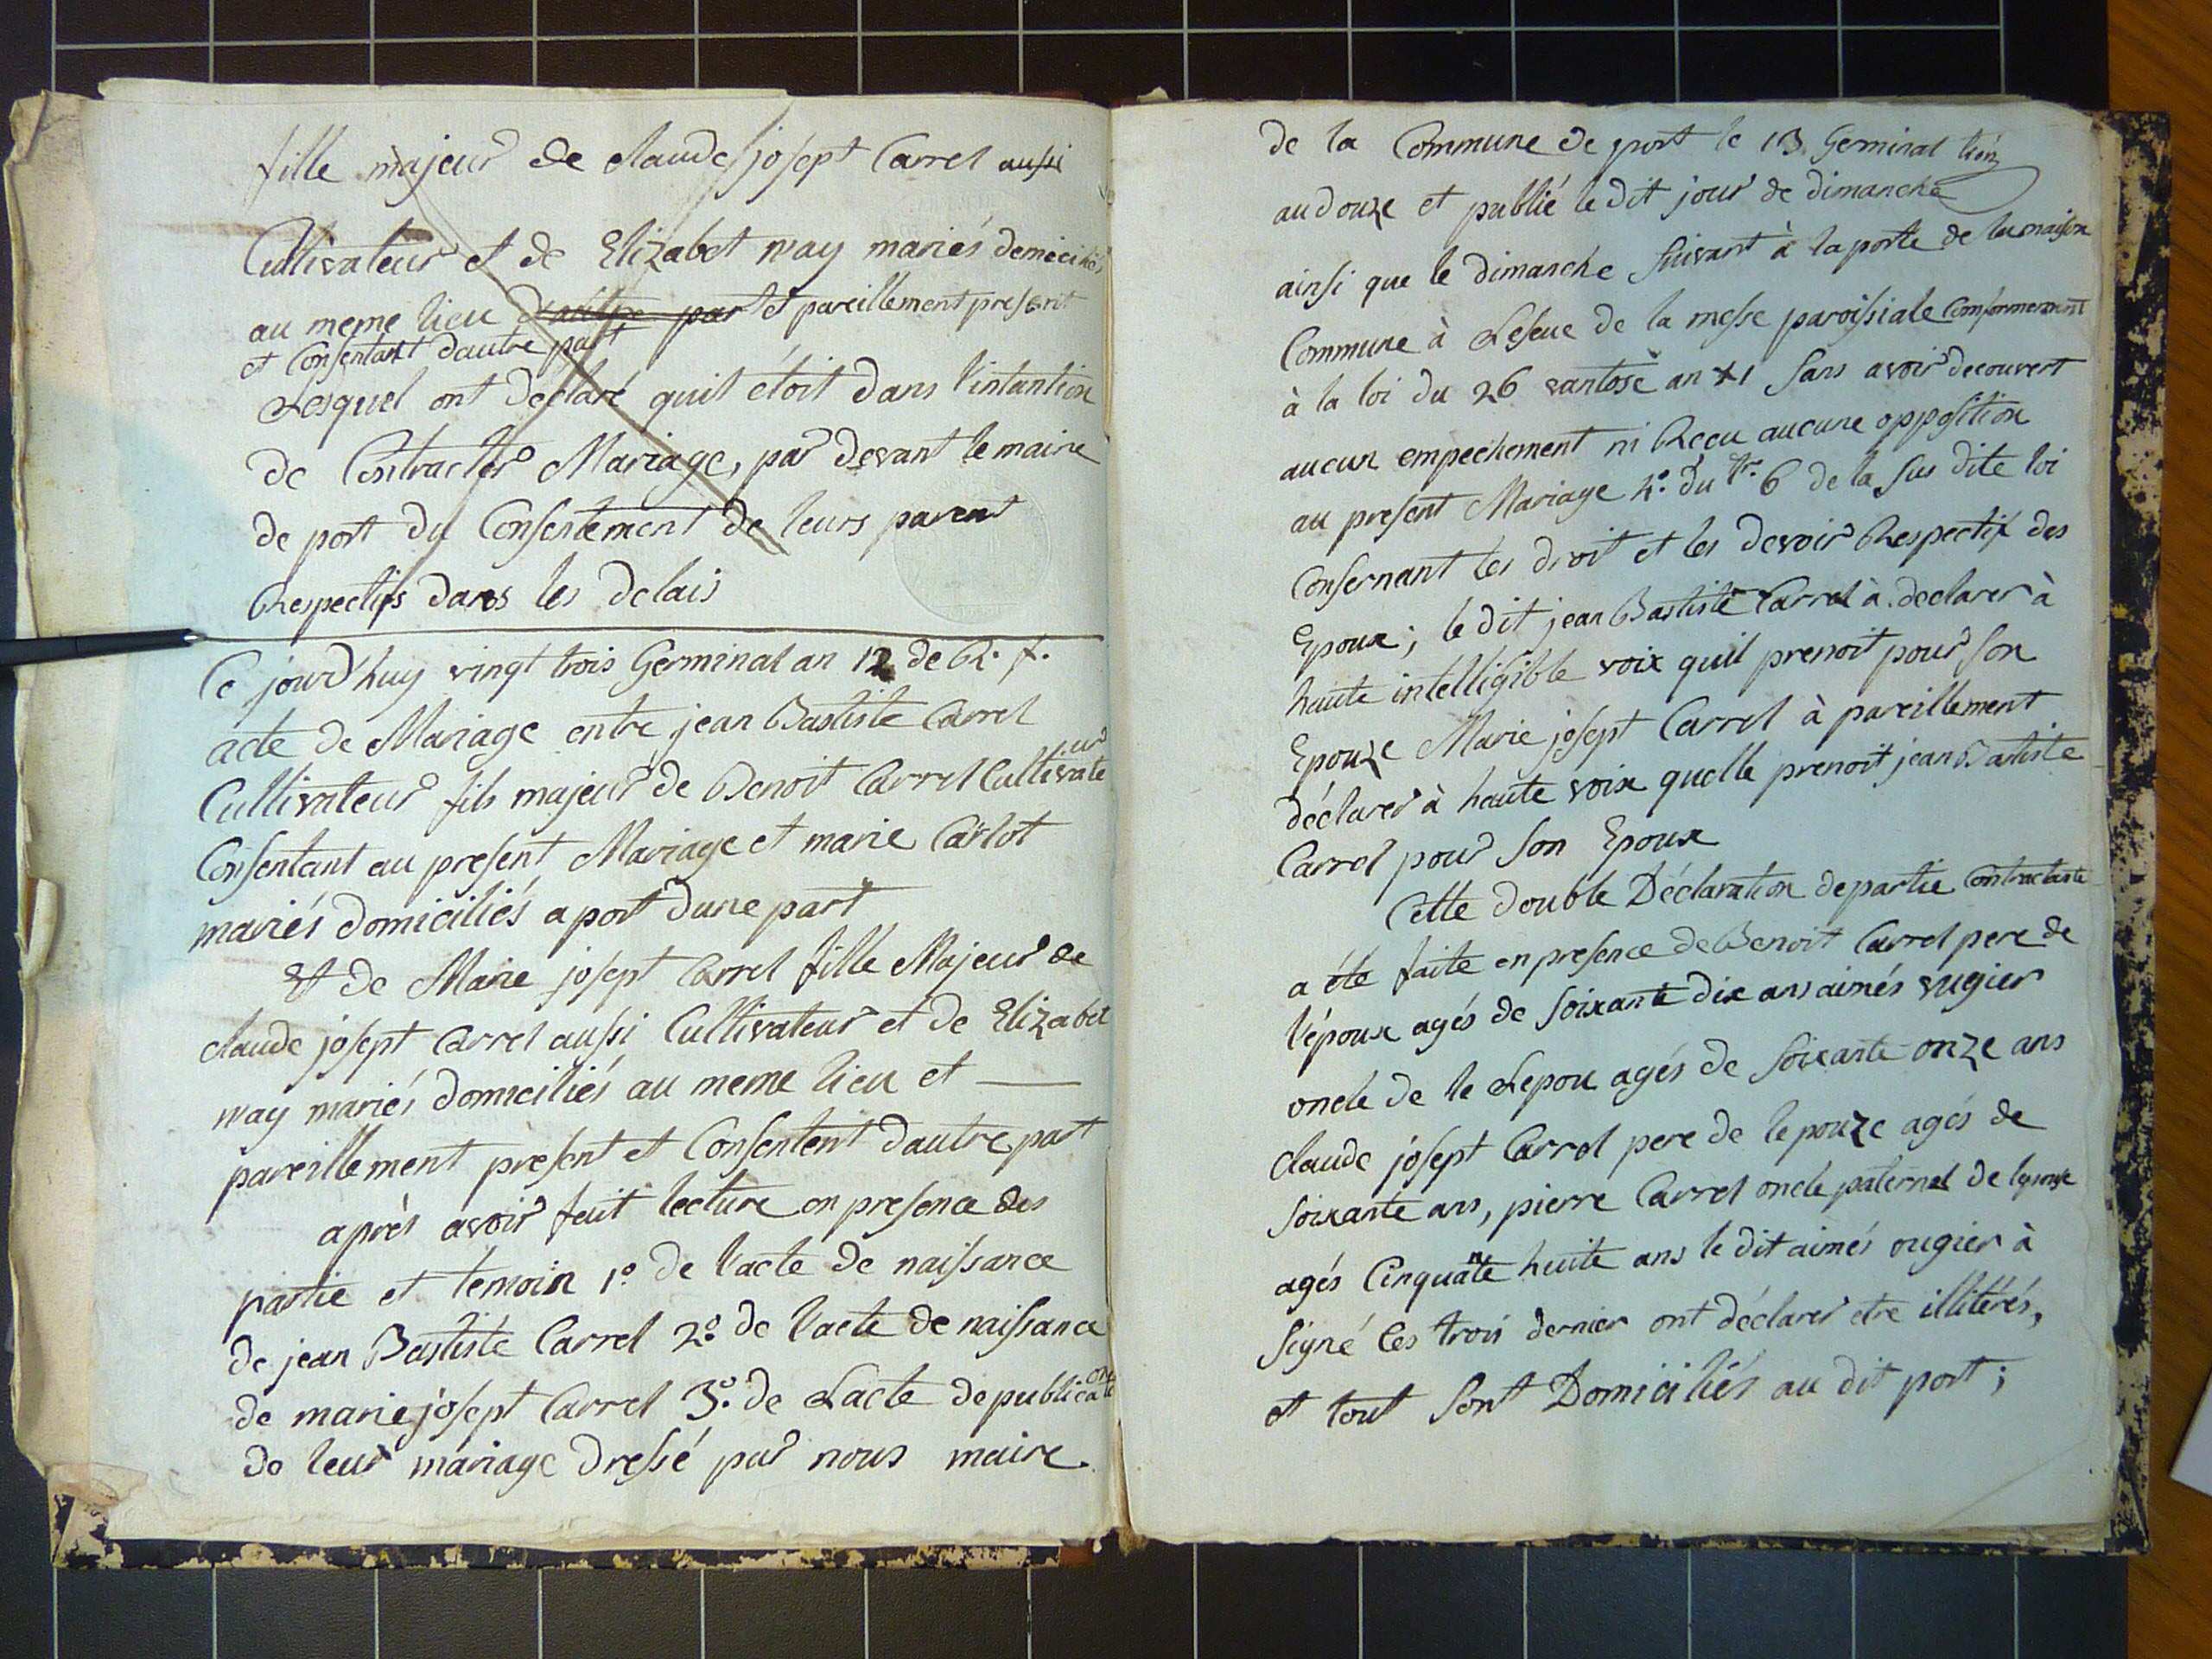 fille majeur de claude josept Carrel aussi
Cultivateur et de Elizabet way mariés demeciliés
au meme lieu d'autre part et pareillement present
et Consentant dautre part
Lesquel ont déclaré quil étoit dans l'intantion
de Contracter Mariage, par devant le maire
de port du Consentement de leurs parent
Respectifs dans les delais
Ce jourd'huy vingt trois Germinal an 12 de R. f.
acte de Mariage entre jean Bastiste Carrel
Cultivateur fils majeur de Benoit Carrel Cultivateur
Consentant au present Mariage et marie Carlot
mariés domiciliés a port dune part
Et de Marie josept Carrel fille Majeur de
claude josept Carrel aussi Cultivateur et de Elizabet
way mariés domiciliés au meme lieu et
pareillement present et Consentent dautre part
après avoir fait lecture en presence des
partie et temoin 1.º de l'acte de naissance
de jean Bastiste Carrel 2.º de l'acte de naissance
de marie josept Carrel 3.º de Lacte de publication
de leur mariage dressé par nous maire
de la Commune de port le 13 Germinal
au douze et publié le dit jour de dimanche
ainsi que le dimanche suivant à la porte de la maison
Commune à Leseue de la messe paroissiale Conformement
à la loi du 26 vantose an XI sans avoir decouvert
aucun empechement ni Reçu aucune opposition
au present Mariage 4.º du tr. 6 de la sus dite loi
Consernant les droit et les devoir Respectif des
Epoux; le dit jean Bastiste Carrel à declarer à
haute intelligible voix quil prenoit pour son
Epouze Marie josept Carrel à pareillement
déclarer à haute voix quelle prenoit jean Batiste
Carrel pour son Epoux
Cette double Déclaration de partie Contractante
a éte faite en presence de Benoit Carrel pere de
l'époux agés de soixante dix ans aimés vugier
oncle de le Lepou agés de soixante onze ans
claude josept Carrel pere de lepouze agés de
soixante ans, pierre Carrel oncle paternel de lepouze
agés Cinquante huite ans le dit aimés ougier à
signé les trois dernier ont déclarer etre illitérés,
et tout sont Domiciliés au dit port;